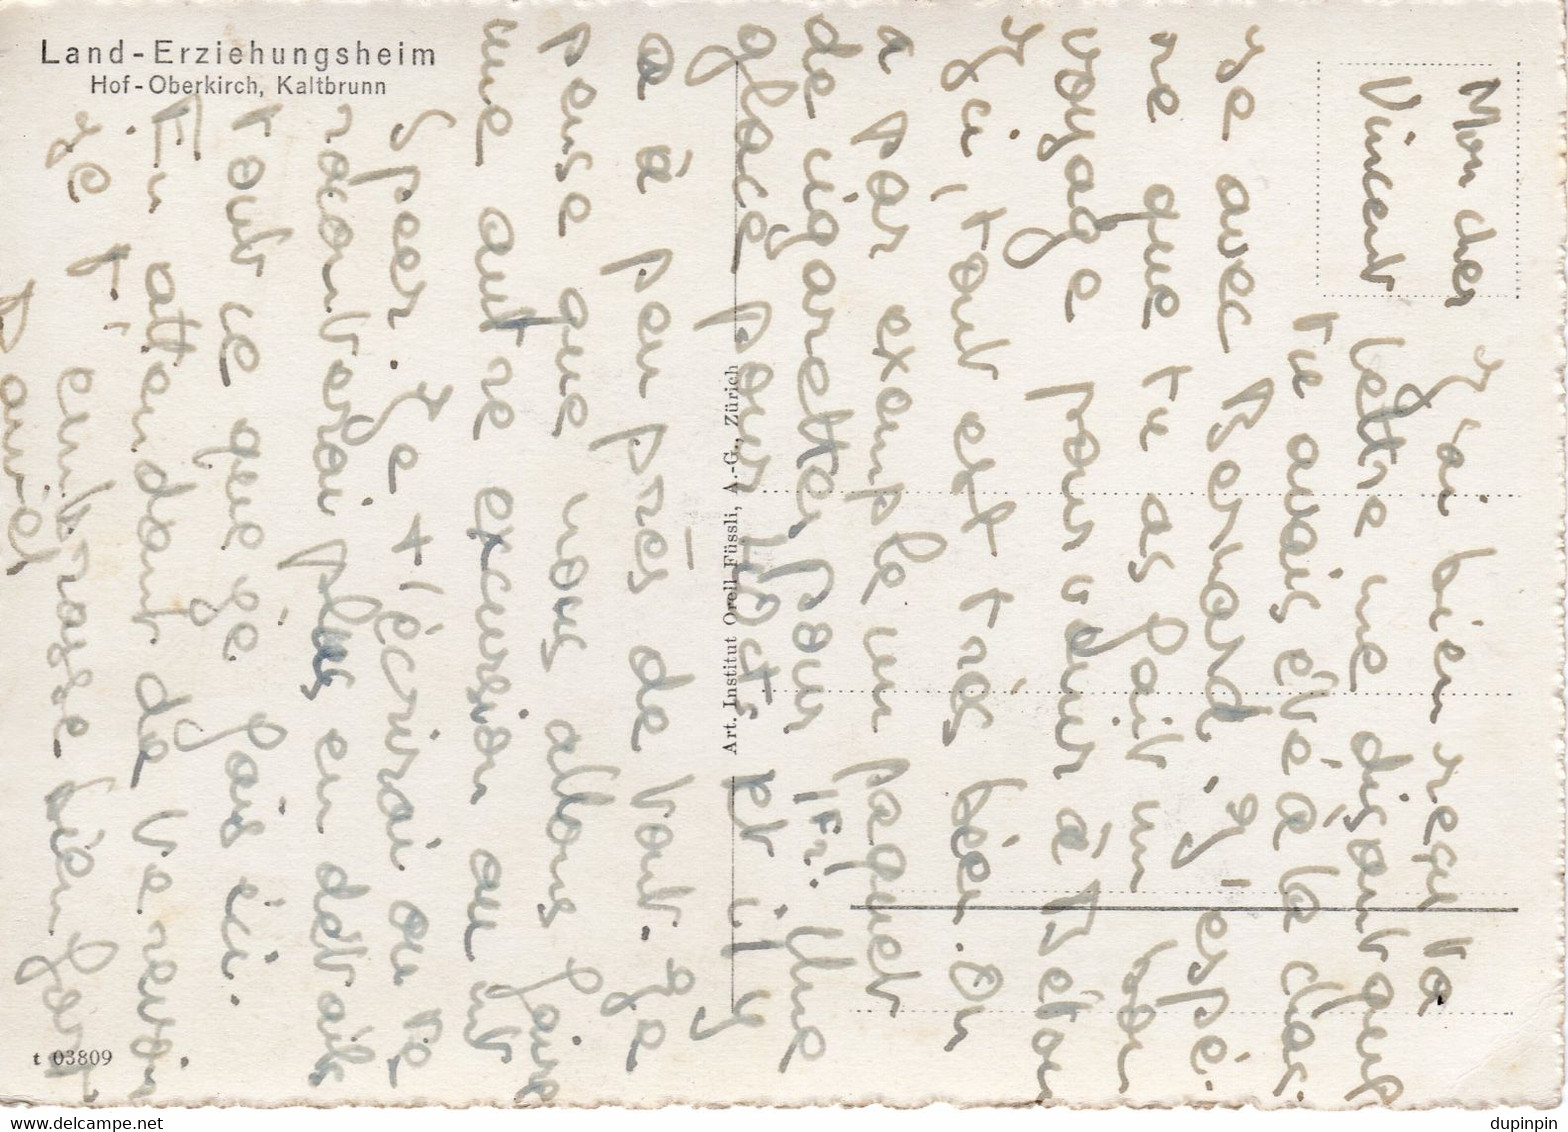 Land-Erziehungsheim
Hof-Oberkirch, Kaltbrunn
Mon cher
Vincent
J'ai bien reçu ta
lettre me disant que
tu avais été à la chas-
se avec Bernard. J'espé-
re que tu as fait un bon
voyage pour venir à
Ici, tout est très bien. On
a par exemple un paquet
de cigarettes pour 1Fr! Une
glace pour 20cts et il y
a à peu près de tout. Je
pense que nous allons faire
une autre excursion au
Speer. Je t'écrirai ou te
raconterai plus en détails
tout ce que je fais ici.
En attendant de te revoir
je t'embrasse bien fort
Art. Institut Orell Füssli, A.-G., Zürich
t 03809
dupinpin